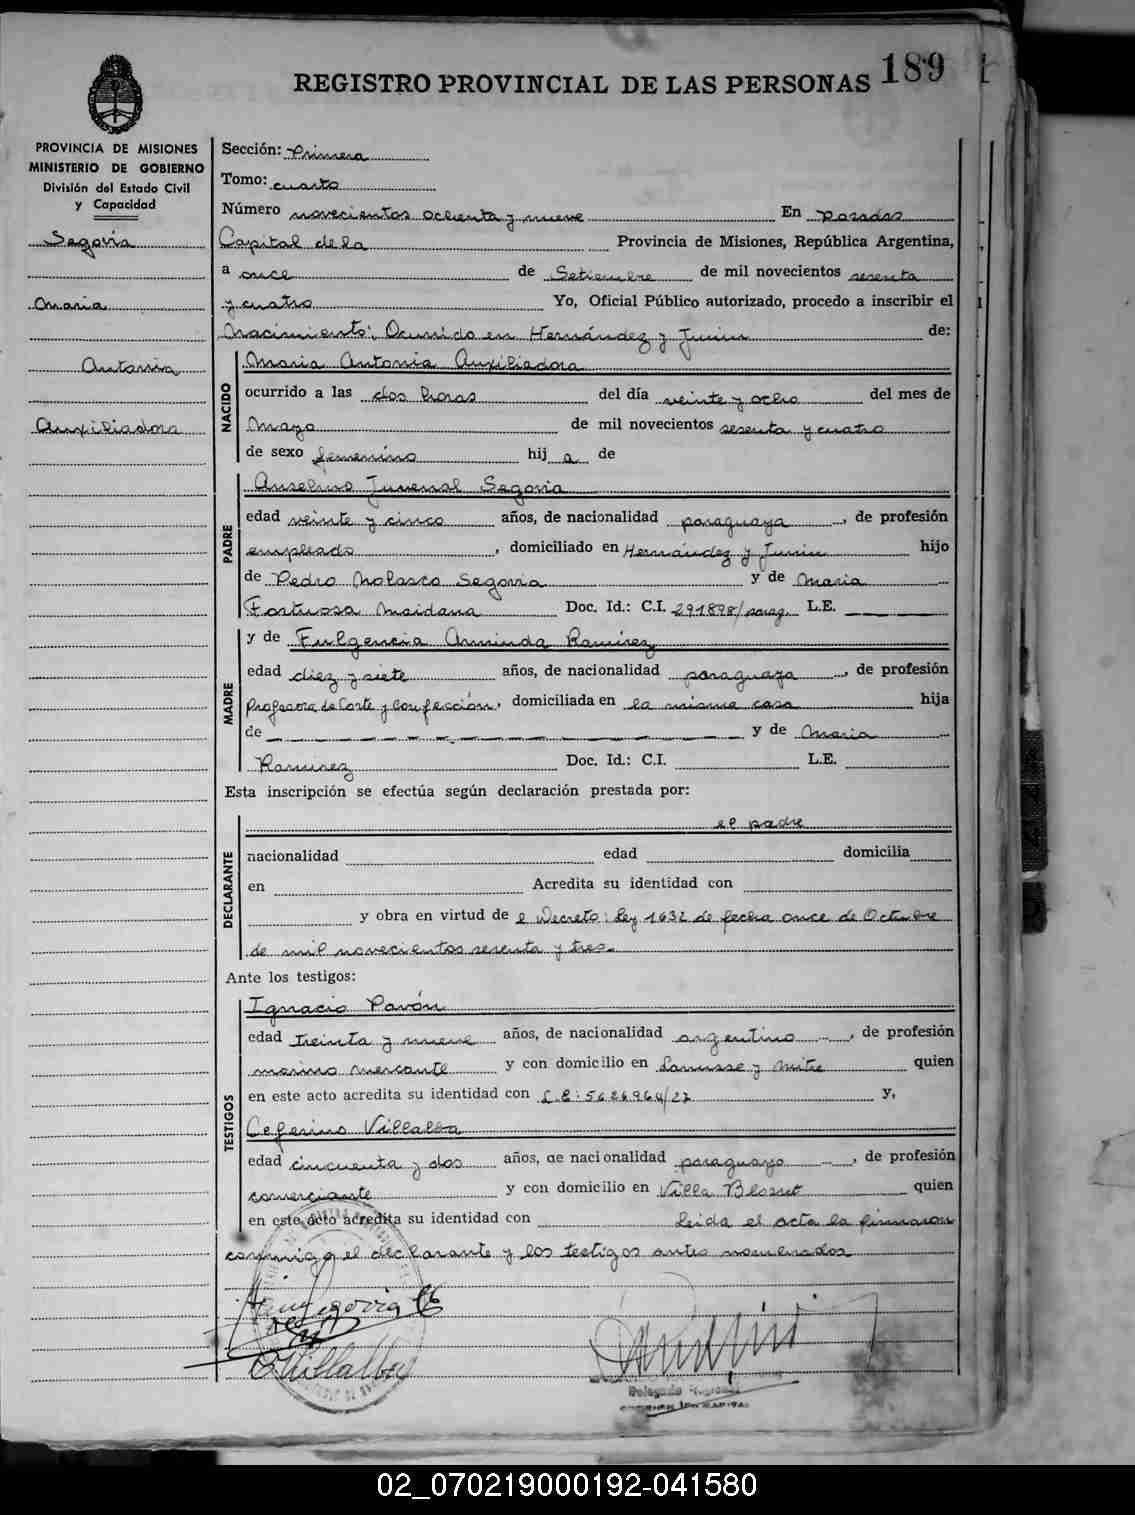 189
REGISTRO PROVINCIAL DE LAS PERSONAS
PROVINCIA DE MISIONES
MINISTERIO DE GOBIERNO
División del Estado Civil
y Capacidad
Segovia
Maria
Antonia
Auxiliadora
Sección: Primera
Tomo: cuarto
Número novecientos ochenta y nueve En Posadas
Capital de la Provincia de Misiones, República Argentina,
a once de Setiembre de mil novecientos sesenta
y cuatro Yo, Oficial Público autorizado, procedo a inscribir el
Nacimiento: Ocurrido en Hernández y Junin de:
NACIDO
Maria Antonia Auxiliadora
ocurrido a las dos horas del día veinte y ocho del mes de
Mayo de mil novecientos sesenta y cuatro
de sexo femenino hij a de
PADRE
Anselmo Juvenal Segovia
edad veinte y cinco años, de nacionalidad paraguaya, de profesión
empleado, domiciliado en Hernández y Junin hijo
de Pedro Nolasco Segovia y de Maria
Fortuosa Maidana Doc. Id.: C.I. 291898/parag. L.E.
MADRE
y de Fulgencia Arminda Ramirez
edad diez y siete años, de nacionalidad paraguaya, de profesión
Profesora de Corte y Confección, domiciliada en la misma casa hija
de y de Maria
Ramirez Doc. Id.: C.I. L.E.
Esta inscripción se efectúa según declaración prestada por:
DECLARANTE
el padre
nacionalidad edad domicilia
en Acredita su identidad con
y obra en virtud de el Decreto: Ley 1632 de fecha once de Octubre
de mil novecientos sesenta y tres.
Ante los testigos:
TESTIGOS
Ignacio Pavón
edad treinta y nueve años, de nacionalidad argentino, de profesión
marino mercante y con domicilio en Lanusse y Mitre quien
en este acto acredita su identidad con L.E: 5626964/27 y,
Ceferino Villalba
edad cincuenta y dos años, de nacionalidad paraguayo, de profesión
comerciante y con domicilio en Villa Blosset quien
en este acto acredita su identidad con Leida el acta la firmaron
conmigo el declarante y los testigos antes nombrados
Segovia
CVillalba
Delegado Regional
02_070219000192-041580